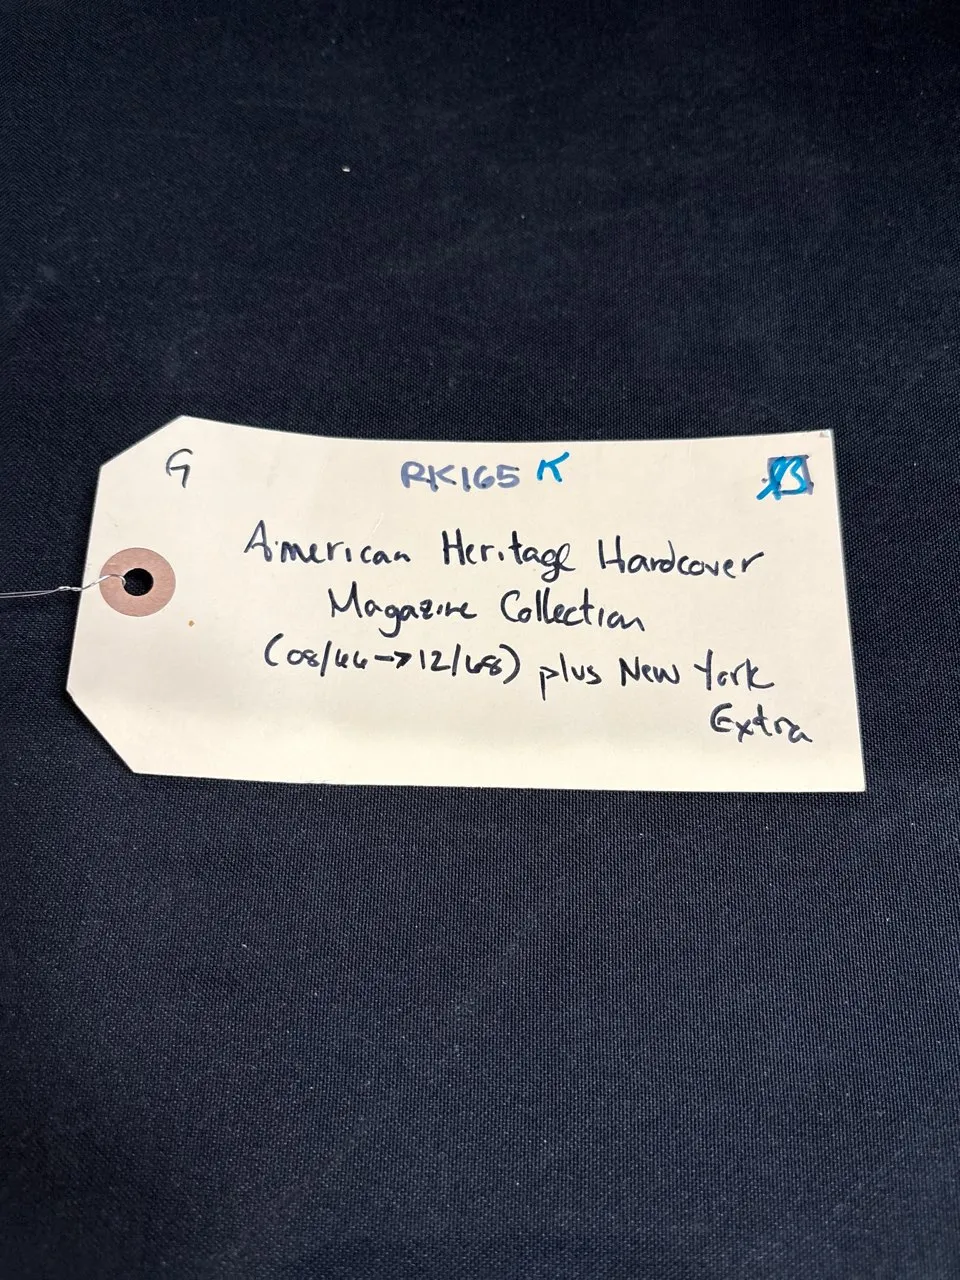 G RK165 K B
American Heritage Hardcover
Magazine Collection
(08/66→12/68) plus New York
Extra